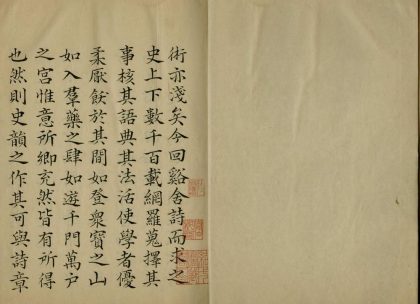 術亦淺矣今回谿舍詩而求之
史上下數千百載網羅蒐擇其
事核其語典其法活使學者優
柔厭飫於其間如登衆寶之山
如入羣藥之肆如遊千門萬户
之宫惟意所卿充然皆有所得
也然則史韻之作其可與詩章